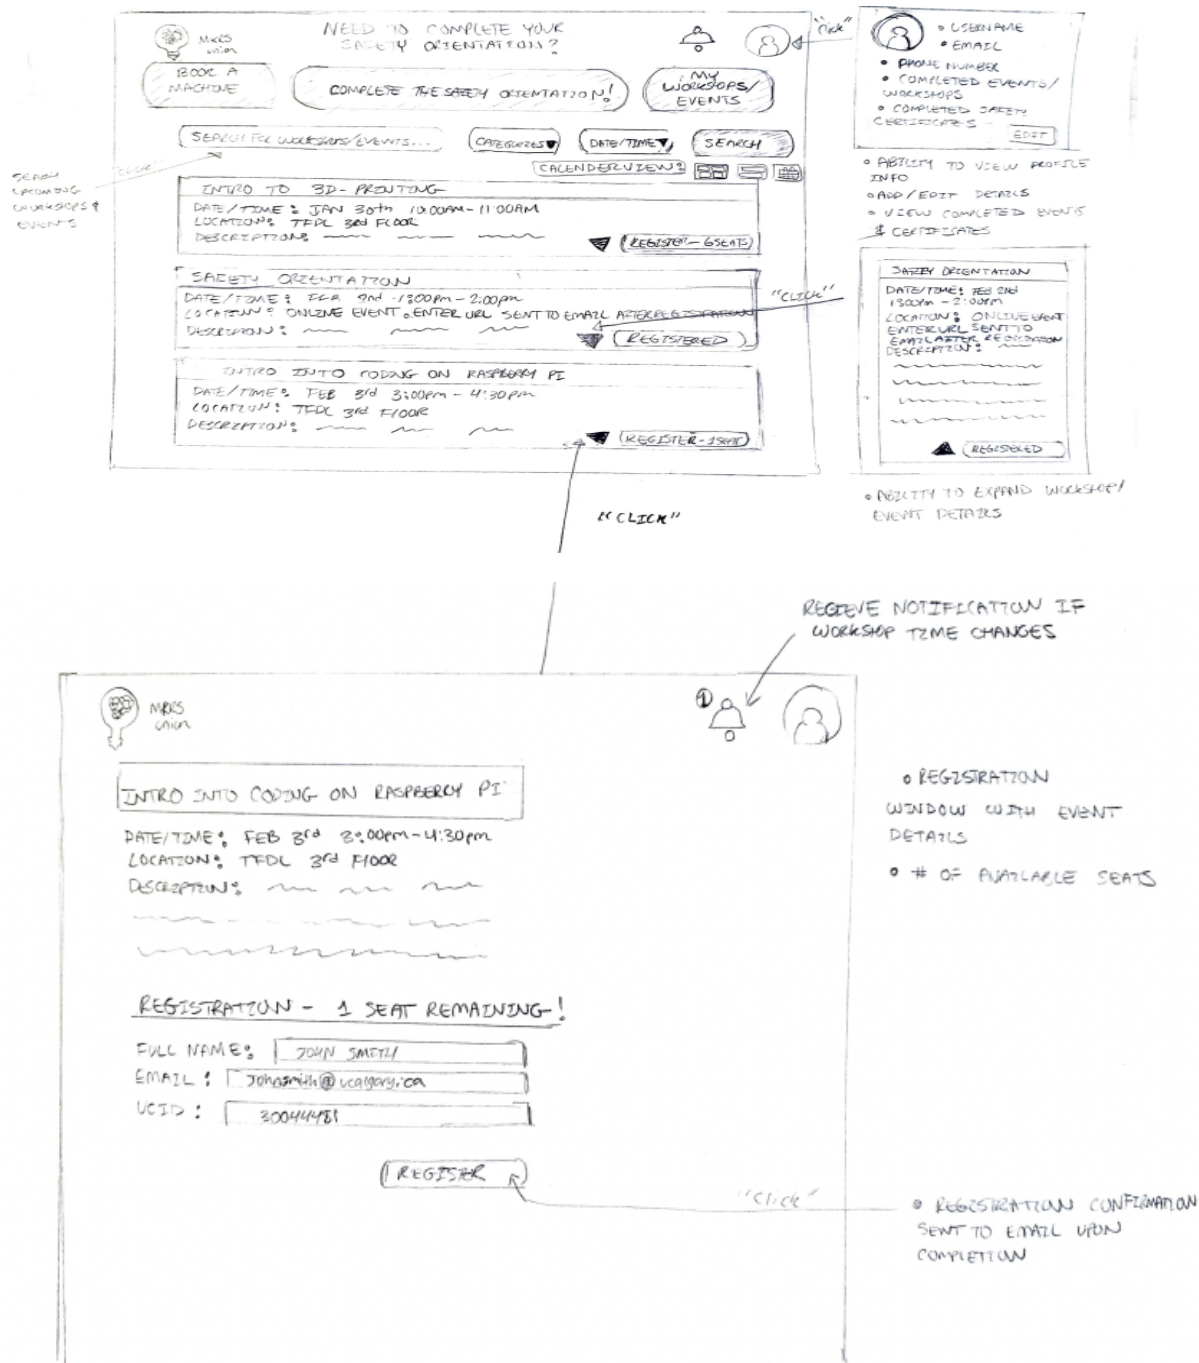 MKRS
union
NEED TO COMPLETE YOUR
SAFETY ORIENTATION?
BOOK A
MACHINE
COMPLETE THE SAFETY ORIENTATION!
MY
WORKSOPS/
EVENTS
SEARCH FOR WORKSHOPS/EVENTS...
CATEGORIES
DATE/TIME
SEARCH
CALENDERVIEW:
SEARH
UPCOMING
WORKSHOPS &
EVENTS
"CLICK"
INTRO TO 3D-PRINTING
DATE/TIME: JAN 30th 10:00AM-11:00AM
LOCATION: TFDL 3rd FLOOR
DESCRIPTION:
REGISTER-6SEATS
SAFETY ORIENTATION
DATE/TIME: FEB 2nd 1:00pm-2:00pm
LOCATION: ONLINE EVENT. ENTER URL SENT TO EMAIL AFTER REGISTRATION
DESCRIPTION:
REGISTERED
INTRO INTO CODING ON RASPBERRY PI
DATE/TIME: FEB 3rd 3:00pm-4:30pm
LOCATION: TFDL 3rd FLOOR
DESCRIPTION:
REGISTER-1SEAT
"click"
• USERNAME
• EMAIL
• PHONE NUMBER
• COMPLETED EVENTS/
WORKSHOPS
• COMPLETED SAFETY
CERTIFICATES
EDIT
• ABILITY TO VIEW PROFILE
INFO
• ADD/EDIT DETAILS
• VIEW COMPLETED EVENTS
& CERTIFICATES
"CLICK"
SAFETY ORIENTATION
DATE/TIME: FEB 2nd
1:00pm-2:00pm
LOCATION: ONLINE EVENT
ENTER URL SENT TO
EMAIL AFTER REGISTRATION
DESCRIPTION:
REGISTERED
• ABILITY TO EXPAND WORKSHOP/
EVENT DETAILS
"CLICK"
RECIEVE NOTIFICATION IF
WORKSHOP TIME CHANGES
MKRS
union
1
INTRO INTO CODING ON RASPBERRY PI
DATE/TIME: FEB 3rd 3:00pm-4:30pm
LOCATION: TFDL 3rd FLOOR
DESCRIPTION:
REGISTRATION - 1 SEAT REMAINING!
FULL NAME: JOHN SMITH
EMAIL: Johnsmith@ucalgary.ca
UCID: 30044481
REGISTER
• REGISTRATION
WINDOW WITH EVENT
DETAILS
• # OF AVAILABLE SEATS
"Click"
• REGISTRATION CONFIRMATION
SENT TO EMAIL UPON
COMPLETION